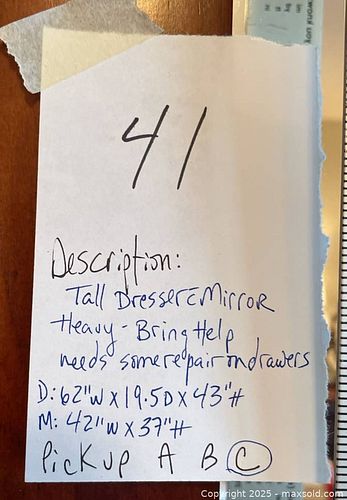 41
Description:
Tall Dresser c̄ Mirror
Heavy - Bring Help
needs some repair on drawers
D: 62"W x 19.5D x 43"H
M: 42"W x 37"H
Pickup A B C
Copyright 2025 - maxsold.com